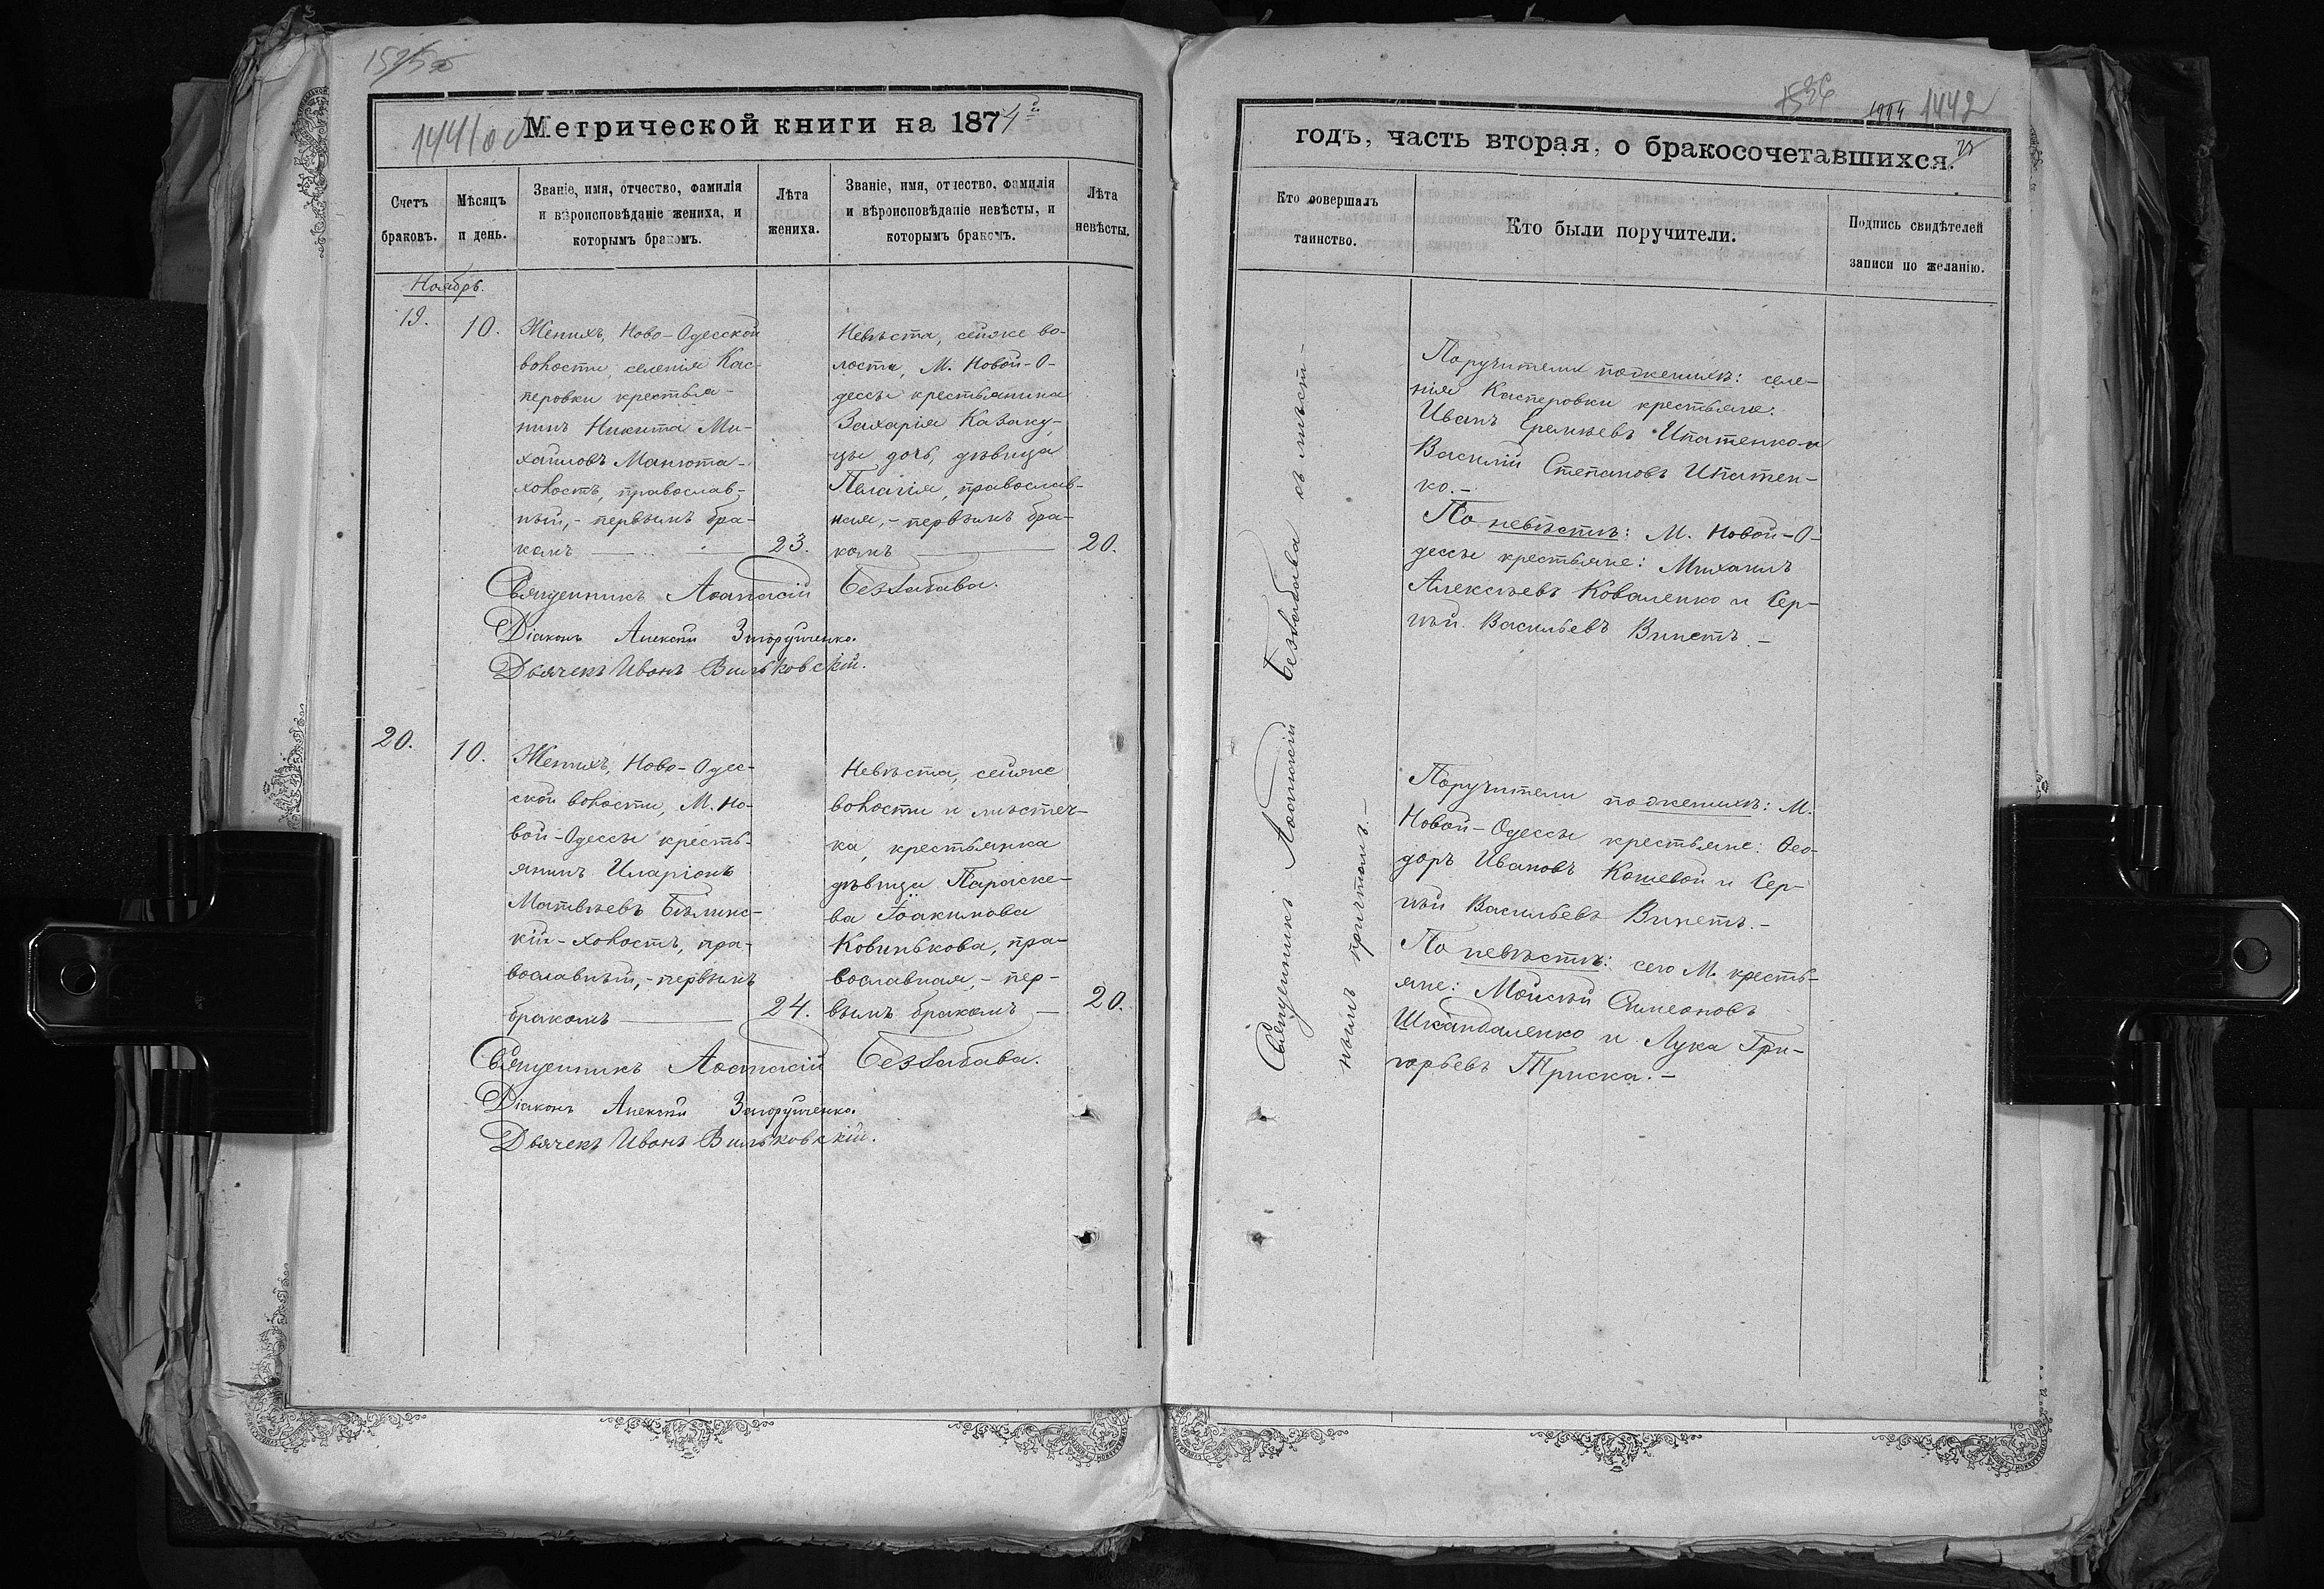 1441об
Метрической книги на 1874г.
Счетъ браковъ.
Мѣсяцъ и день.
Званіе, имя, отчество, фамилія и вѣроисповѣданіе жениха, и которымъ бракомъ.
Лѣта жениха.
Званіе, имя, отчество, фамилія и вѣроисповѣданіе невѣсты, и которымъ бракомъ.
Лѣта невѣсты.
Ноябрь.
19.
10.
Женихъ, Ново-Одесской
волости, селенія Кас-
перовки крестья-
нинъ Никита Ми-
хаиловъ Манюта-
холостъ, православ-
ный,- первымъ бра-
комъ
23.
Невѣста, сейже во-
лости, М. Новой-О-
дессы крестьянина
Захарія Казаку-
цы дочь, дѣвица
Пелагія, православ-
ная,- первымъ бра-
комъ
20.
Священникъ Аѳанасій Беззабава.
Діаконъ Алексѣй
Дьячекъ Иванъ Вильковскій.
20.
10.
Женихъ, Ново-Одес-
ской волости, М. Но-
вой-Одессы кресть-
янинъ Иларіонъ
Матвѣевъ Бѣлинс-
кій-холостъ, пра-
вославный,- первымъ
бракомъ
24.
Невѣста, сейже
волости и мѣстеч-
ка, крестьянка
дѣвица Параске-
ва Іоакимова
Ковинькова, пра-
вославная,- пер-
вымъ бракомъ
20.
Священникъ Аѳанасій Беззабава.
Діаконъ Алексѣй
Дьячекъ Иванъ Вильковскій.
1536
1442
годъ, часть вторая, о бракосочетавшихся.
Кто совершалъ таинство.
Кто были поручители.
Подпись свидѣтелей записи по желанію.
Священникъ Аѳанасій Беззабава съ мѣст-
нымъ причтомъ.-
Поручители по женихѣ: селе-
нія Касперовки крестьяне:
Иванъ Еремѣевъ Ипатенко и
Василій Степановъ Ипатен-
ко.-
По невѣстѣ: М. Новой-О-
дессы крестьяне: Михаилъ
Алексѣевъ Коваленко и Сер-
гѣй Васильевъ Винетъ.-
Поручители по женихѣ: М.
Новой-Одессы крестьяне: Ѳео-
доръ Ивановъ Кошевой и Сер-
гѣй Васильевъ Винетъ.-
По невѣстѣ: сего М. кресть-
яне: Мойсѣй Симеоновъ
Шкандаленко и Лука Гри-
горьевъ Триска.-